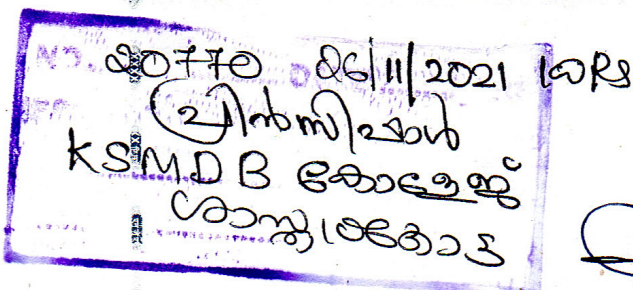 20770 26/11/2021 100Rs
പ്രിൻസിപ്പാൾ
KSMDB കോളേജ്
ശാസ്താംകോട്ട